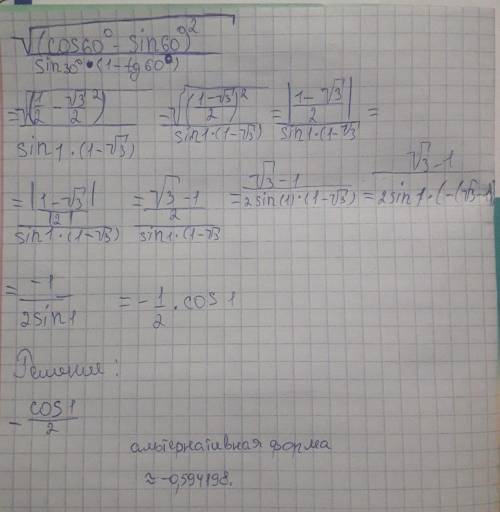 √(cos60° - sin60°)²
sin30° • (1 - tg60°)
= √(1/2 - √3/2)² / sin1 · (1-√3) = √((1-√3)/2)² / sin1·(1-√3) = |(1-√3)/2| / sin1·(1-√3 =
= |1-√3| / |2| / sin1·(1-√3) = (√3-1)/2 / sin1·(1-√3 = √3-1 / 2sin(1)·(1-√3) = √3-1 / 2sin1·(-(√3-1)
= -1 / 2sin1 = - 1/2 · cos1
Решение:
- cos1 / 2
альтернативная форма
≈ -0,594198.